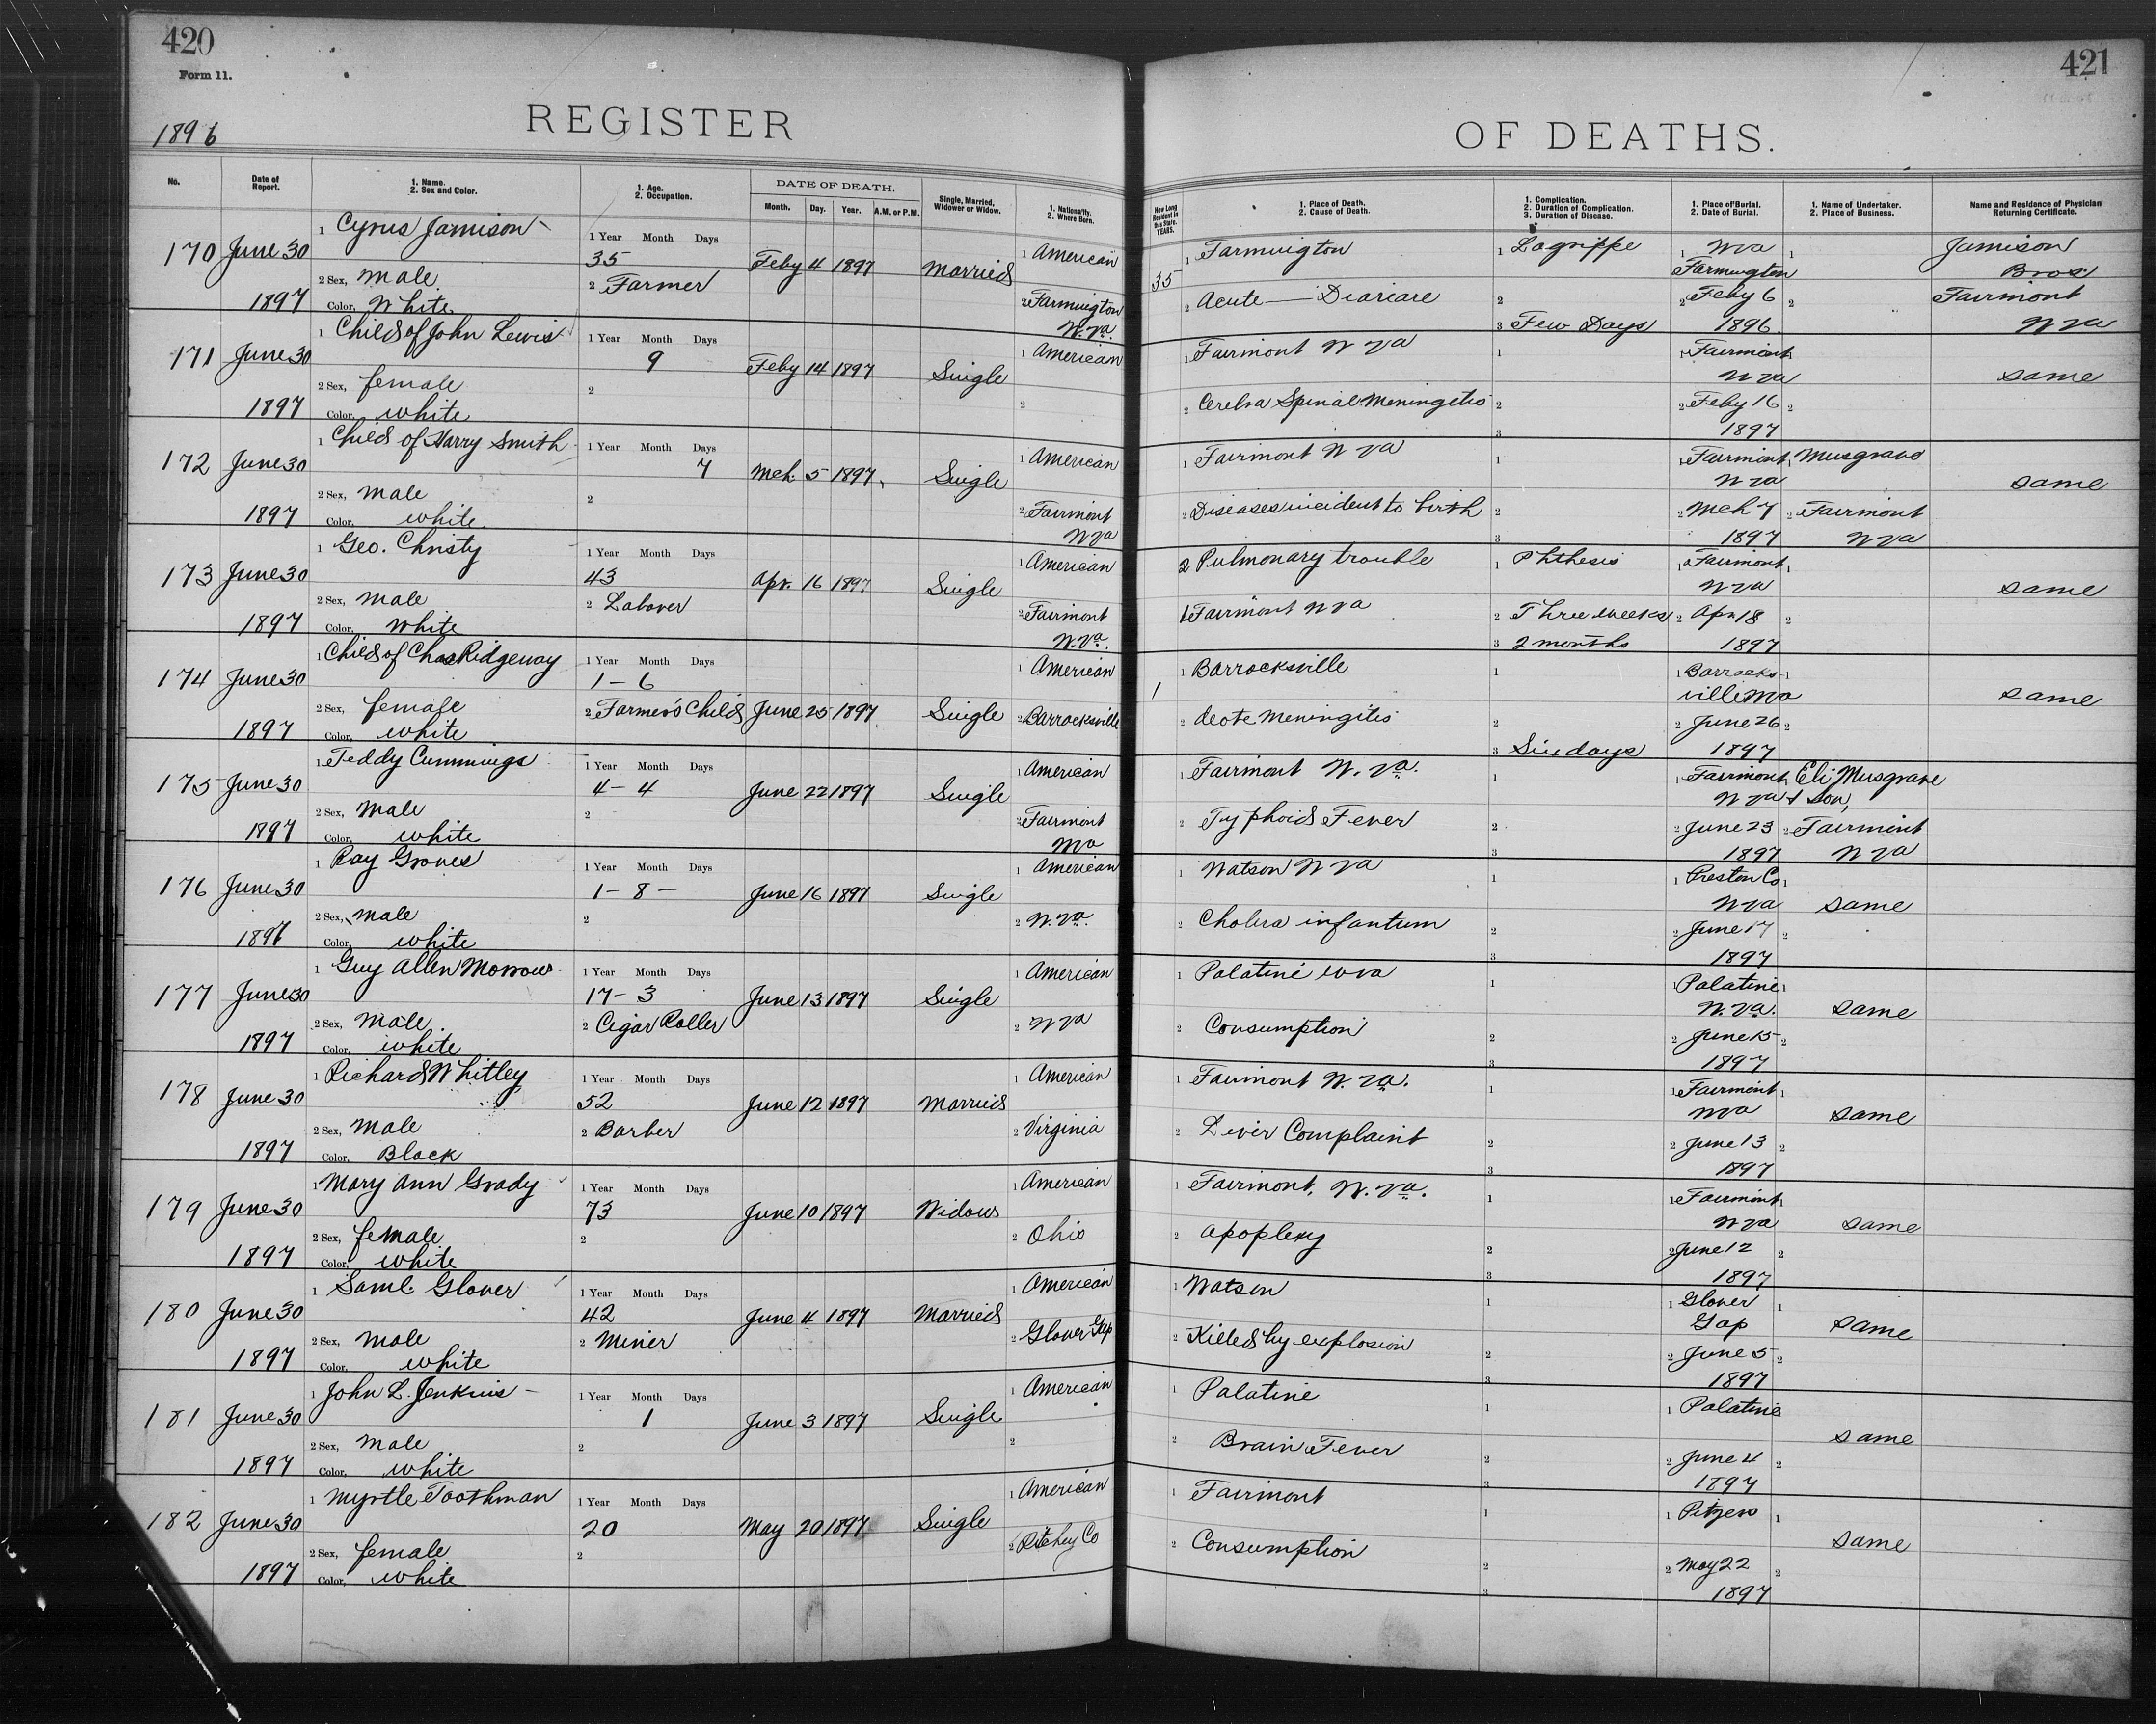 420
Form 11.
1896
REGISTER
No.
Date of Report.
1. Name.
2. Sex and Color.
1. Age.
2. Occupation.
DATE OF DEATH.
Month. Day. Year. A.M. or P.M.
Single, Married, Widower or Widow.
1. Nationality.
2. Where Born.
170 June 30 1897
1 Cyrus Jamison
2 Sex, Male
Color, White
1 Year Month Days
35
2 Farmer
Feby 4 1897 Married
1 American
2 Farmington W. Va.
171 June 30 1897
1 Child of John Lewis
2 Sex, female
Color, white
1 Year Month Days
9
2
Feby 14 1897 Single
1 American
2
172 June 30 1897
1 Child of Harry Smith
2 Sex, Male
Color, white
1 Year Month Days
7
2
Mch. 5 1897 Single
1 American
2 Fairmont W Va
173 June 30 1897
1 Geo. Christy
2 Sex, Male
Color, White
1 Year Month Days
43
2 Laborer
Apr. 16 1897 Single
1 American
2 Fairmont W. Va.
174 June 30 1897
1 Child of Chas Ridgeway
2 Sex, female
Color, white
1 Year Month Days
1 - 6
2 Farmer's Child
June 25 1897 Single
1 American
2 Barracksville
175 June 30 1897
1 Teddy Cummings
2 Sex, Male
Color, white
1 Year Month Days
4 - 4
2
June 22 1897 Single
1 American
2 Fairmont W Va
176 June 30 1897
1 Ray Groves
2 Sex, Male
Color, white
1 Year Month Days
1 - 8 -
2
June 16 1897 Single
1 American
2 W. Va.
177 June 30 1897
1 Guy Allen Morrow
2 Sex, Male
Color, white
1 Year Month Days
17 - 3
2 Cigar Roller
June 13 1897 Single
1 American
2 W Va
178 June 30 1897
1 Richard Whitley
2 Sex, Male
Color, Black
1 Year Month Days
52
2 Barber
June 12 1897 Married
1 American
2 Virginia
179 June 30 1897
1 Mary Ann Grady
2 Sex, female
Color, white
1 Year Month Days
73
2
June 10 1897 Widow
1 American
2 Ohio
180 June 30 1897
1 Saml. Glover
2 Sex, Male
Color, white
1 Year Month Days
42
2 Miner
June 4 1897 Married
1 American
2 Glover Gap
181 June 30 1897
1 John L. Jenkins
2 Sex, Male
Color, white
1 Year Month Days
1
2
June 3 1897 Single
1 American
2
182 June 30 1897
1 Myrtle Toothman
2 Sex, female
Color, white
1 Year Month Days
20
2
May 20 1897 Single
1 American
2 Ritchey Co
421
OF DEATHS.
How Long Resident in this State. YEARS.
1. Place of Death.
2. Cause of Death.
1. Complication.
2. Duration of Complication.
3. Duration of Disease.
1. Place of Burial.
2. Date of Burial.
1. Name of Undertaker.
2. Place of Business.
Name and Residence of Physician Returning Certificate.
35
1 Farmington
2 Acute — Diariare
1 Lagrippe
2
3 Few Days
1 W Va Farmington
2 Feby 6 1896
1
2
Jamison Bros. Fairmont W Va
1 Fairmont W Va
2 Cerebra Spinal Meningetis
1
2
3
1 Fairmont W Va
2 Feby 16 1897
2
same
1 Fairmont W Va
2 Diseases incident to birth
1
2
3
1 Fairmont W Va
2 Mch 7 1897
1 Musgrave
2 Fairmont W Va
same
2 Pulmonary trouble
1 Fairmont W Va
1 Phthesis
2 Three weeks
3 2 months
1 Fairmont W Va
2 Apr 18 1897
1
2
same
1
1 Barracksville
2 Acote Meningitis
1
2
3 Six days
1 Barracksville W Va
2 June 26 1897
1
2
same
1 Fairmont W. Va.
2 Typhoid Fever
1
2
3
1 Fairmont W Va
2 June 23 1897
Eli Musgrave & Son,
2 Fairmont W Va
1 Watson W Va
2 Cholera infantum
1
2
3
1 Preston Co W Va
2 June 17 1897
1 same
2
1 Palatine W Va
2 Consumption
1
2
3
1 Palatine W. Va.
2 June 15 1897
1 same
2
1 Fairmont W. Va.
2 Liver Complaint
1
2
3
1 Fairmont W Va
2 June 13 1897
1 same
2
1 Fairmont, W. Va.
2 Apoplexy
1
2
3
1 Fairmont W Va
2 June 12 1897
same
2
1 Watson
2 Killed by explosion
1
2
3
1 Glover Gap
2 June 5 1897
1 same
2
1 Palatine
2 Brain Fever
1
2
3
1 Palatine
2 June 4 1897
same
2
1 Fairmont
2 Consumption
1
2
3
1 Pitzers
2 May 22 1897
1 same
2